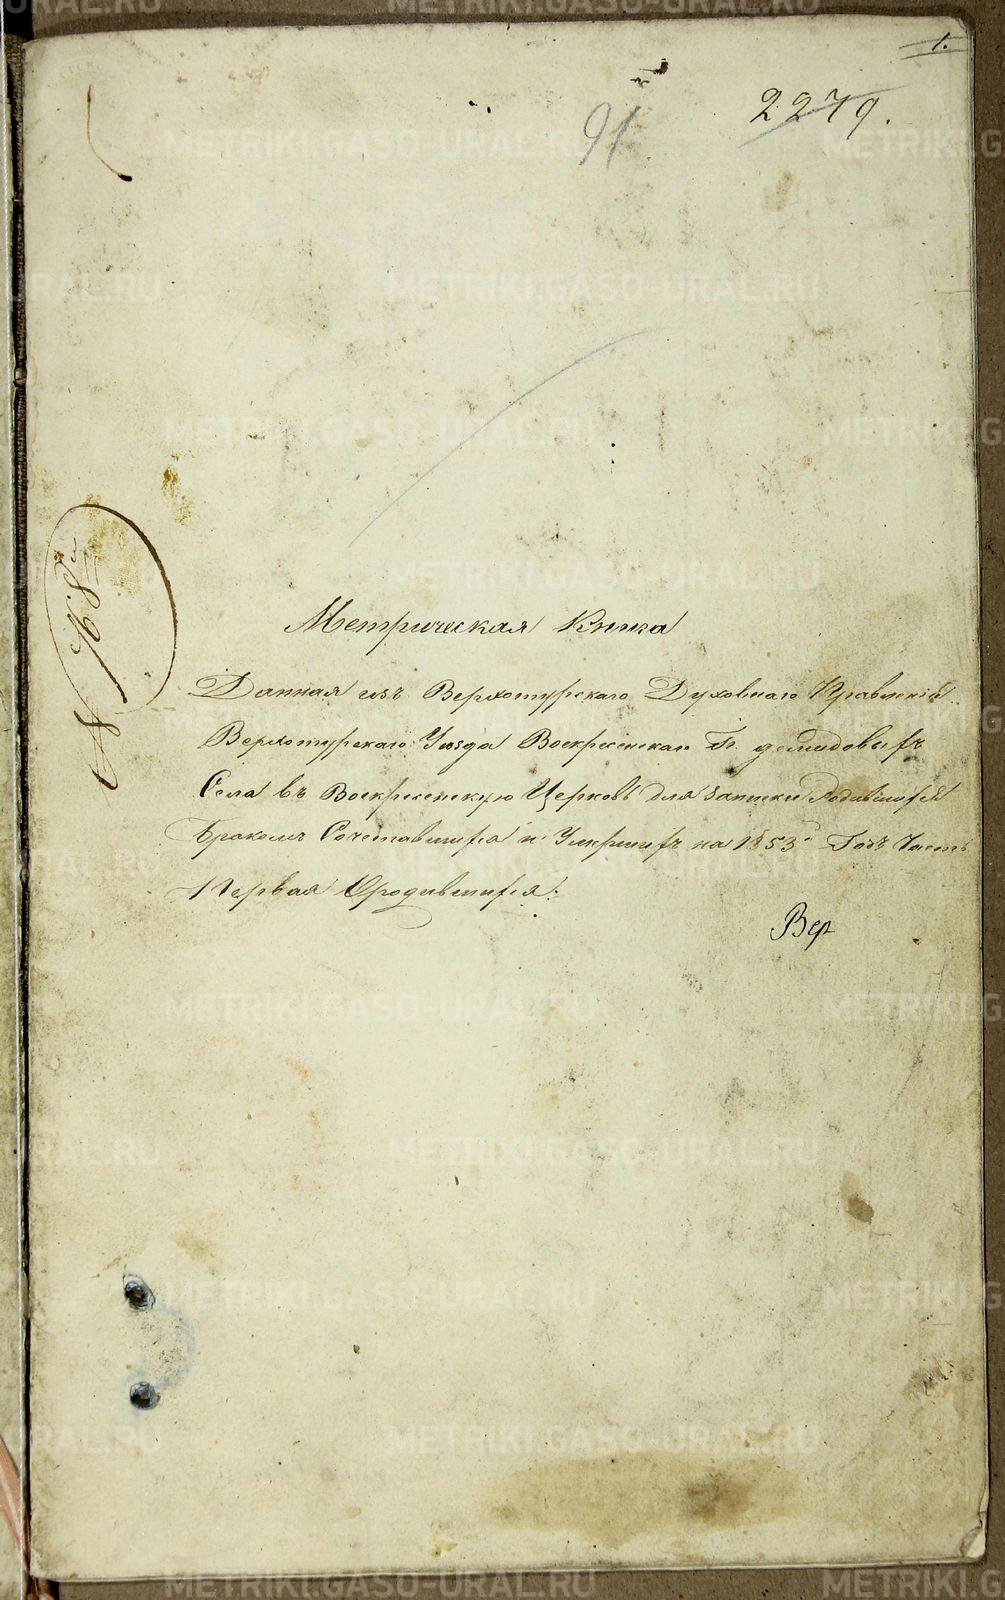 1.
2279.
91
№ 768й
Метрическая Книга
Данная изъ Верхотурскаго Духовнаго Правленія
Верхотурскаго Уезда Воскресенскаго Гг. демидовыхъ
Села въ Воскресенскую Церковь для записки Родившихся
Бракомъ Сочетавшихся и Умершихъ на 1853й Годъ Часть
Первая Ородившихся:
Вер
METRIKI.GASO-URAL.RU